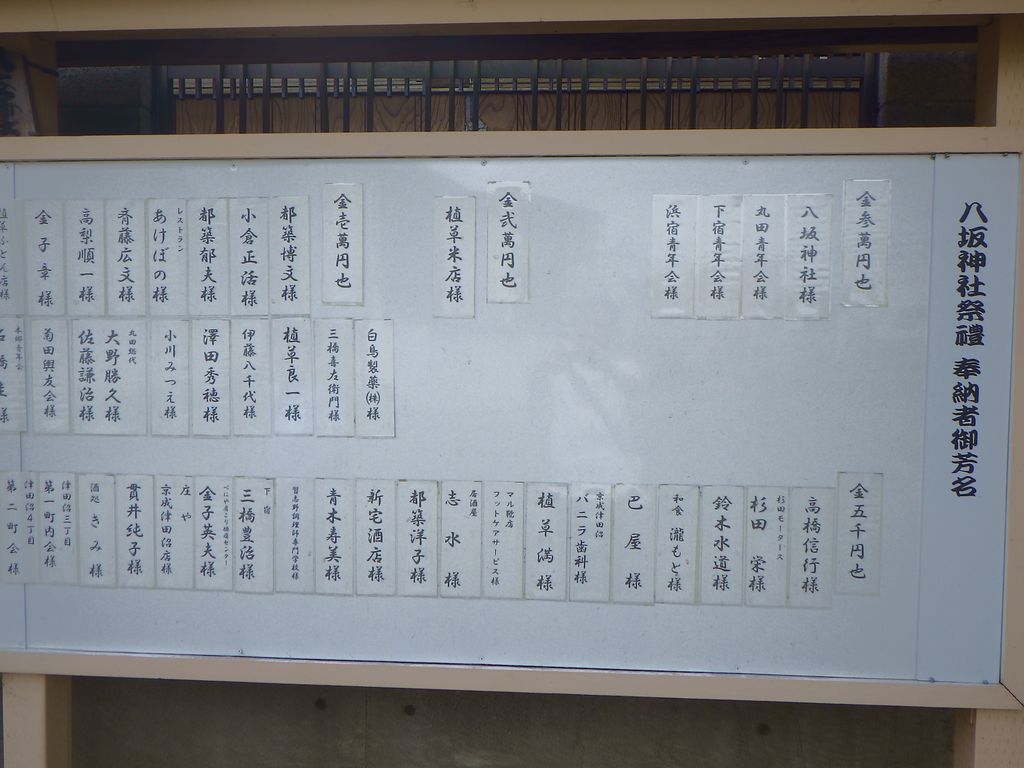 八坂神社祭禮 奉納者御芳名
金参萬円也
八坂神社様
丸田青年会様
下宿青年会様
浜宿青年会様
金弐萬円也
植草米店様
金壱萬円也
都築博文様
小倉正活様
都築郁夫様
レストラン
あけぼの様
斉藤広文様
高梨順一様
金子幸様
植草ふとん店様
白鳥製薬㈱様
三橋喜左衛門様
植草良一様
伊藤八千代様
澤田秀穂様
小川みつえ様
丸田総代
大野勝久様
佐藤謙治様
菊田興友会様
金五千円也
高橋信行様
杉田モータース
杉田 栄様
鈴木水道様
和食 瀧もと様
巴屋様
京成津田沼
バニラ歯科様
植草満様
マル馳店
フットケアサービス様
居酒屋
志水様
都築洋子様
新宅酒店様
青木寿美様
習志野調理師専門学校様
下宿
三橋豊治様
金子英夫様
庄や
京成津田沼店様
貫井純子様
酒処 きみ様
津田沼三丁目
第一町内会様
津田沼4丁目
第二町会様